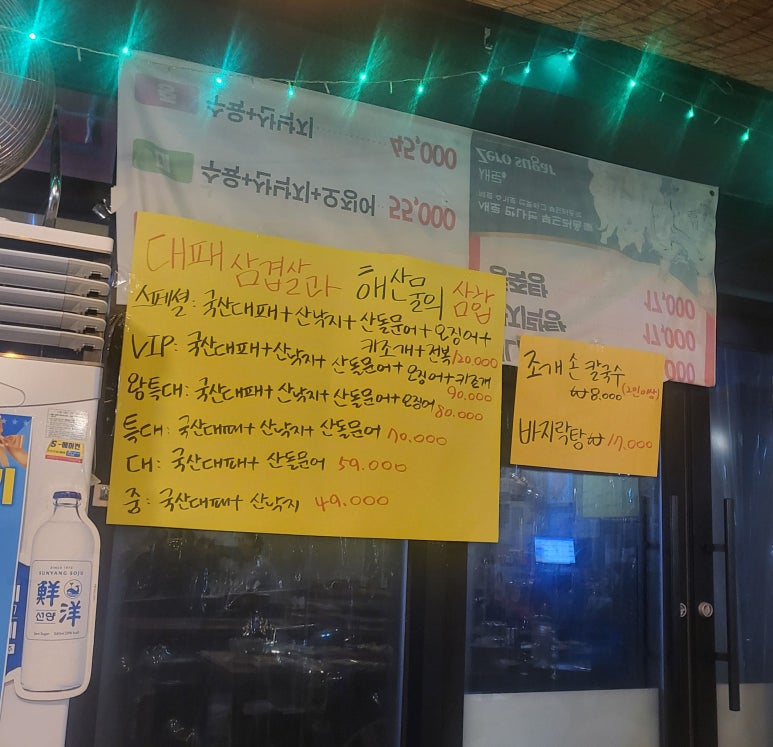 45,000
55,000
Zero sugar
새로
17,000
17,000
000
대패삼겹살과 해산물의 삼합
스페셜: 국산대패+산낙지+산돌문어+오징어+
키조개+전복 120.000
VIP: 국산대패+산낙지+산돌문어+오징어+키조개
90.000
왕특대: 국산대패+산낙지+산돌문어+오징어 80.000
특대: 국산대패+산낙지+산돌문어 70.000
대: 국산대패+산돌문어 59.000
중: 국산대패+산낙지 49.000
조개 손 칼국수
₩8.000 (2인이상)
바지락탕 ₩17.000
S-에어컨
SINCE 1973
SUNYANG SOJU
鮮洋
선양